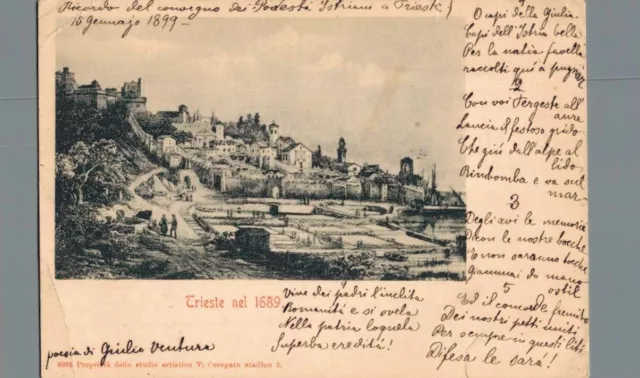 Ricordo del convegno dei Podestà Istriani a Trieste
15 Gennajo 1899 –
O capi della Giulia
Capi dell'Istria bella
Per la natia favella
raccolti qui a pugnar
2
Con voi Tergeste all'
aure
Lancia il festoso grido
Che giù dall'alpe al
lido
Rimbomba e va sul
mar
3
Degli avi le memorie
Dicon le nostre bocche
E non saranno tocche
Giammai da mano
ostil
4
Vive dei padri l'inclita
Romanità e si svela
Nella patria loquela
Superba eredità!
5
Ed il comun fremito
Dei nostri petti uniti
Per sempre in questi liti
Difesa le sarà!
Trieste nel 1689
poesia di Giulio Ventura
Proprietà dello studio artistico V; Coregato stadion 3.